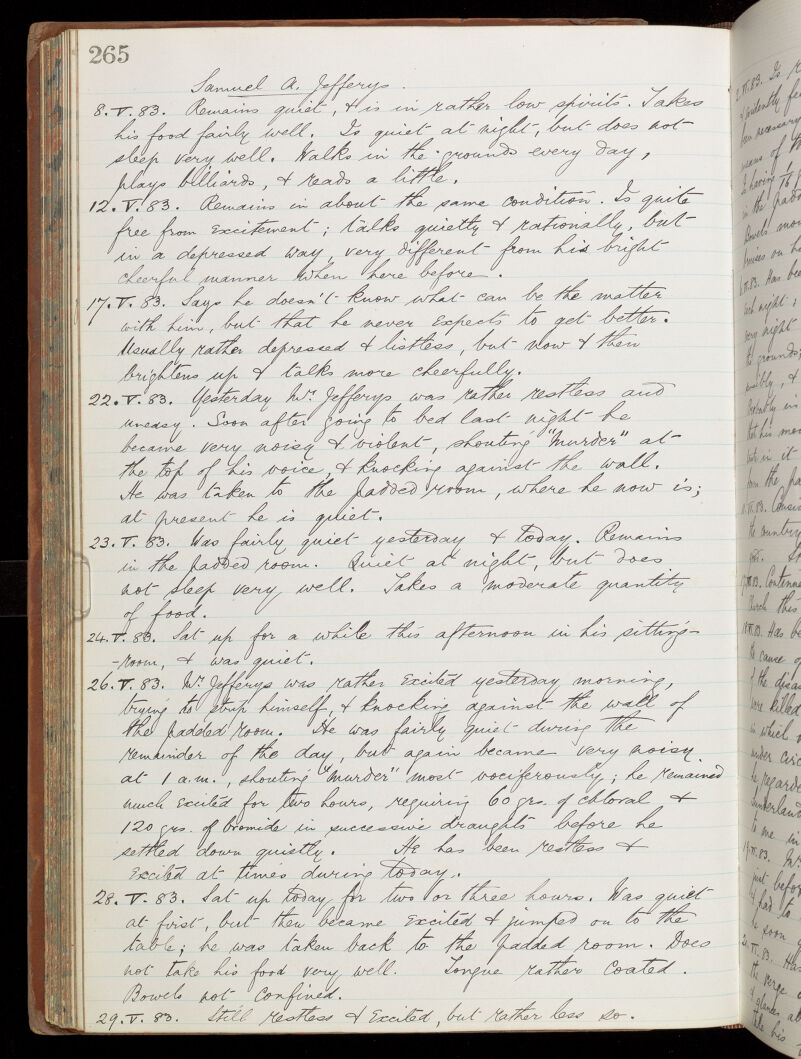 265
Samuel A. Jefferys.
8.V.83. Remains quiet, & is in rather low spirits. Takes
his food fairly well. Is quiet at night, but does not
sleep very well. Walks in the grounds every day,
plays billiards, & reads a little.
12.V.83. Remains in about the same condition. Is quite
free from excitement; talks quietly & rationally, but
in a depressed way, very different from his bright
cheerful manner when here before.
17.V.83. Says he doesn't know what can be the matter
with him, but that he never expects to get better.
Usually rather depressed & listless, but now & then
brightens up & talks more cheerfully.
22.V.83. Yesterday Mr. Jefferys was rather restless and
uneasy. Soon after going to bed last night he
became very noisy & violent, shouting "murder" at
the top of his voice, & knocking against the wall.
He was taken to the padded room, where he now is;
at present he is quiet.
23.V.83. Was fairly quiet yesterday & today. Remains
in the padded room. Quiet at night, but does
not sleep very well. Takes a moderate quantity
of food.
24.V.83. Sat up for a while this afternoon in his sitting-
-room, & was quiet.
26.V.83. Mr. Jefferys was rather excited yesterday morning,
trying to strip himself, & knocking against the wall of
the padded room. He was fairly quiet during the
remainder of the day, but again became very noisy
at 1 a.m., shouting "murder" most vociferously; he remained
much excited for two hours, requiring 60 grs. of chloral &
120 grs. of bromide in successive draughts before he
settled down quietly. He has been restless &
excited at times during today.
28.V.83. Sat up today for two or three hours. Was quiet
at first, but then became excited & jumped on to the
table; he was taken back to the padded room. Does
not take his food very well. Tongue rather coated.
Bowels not confined.
29.V.83. Still restless & excited, but rather less so.